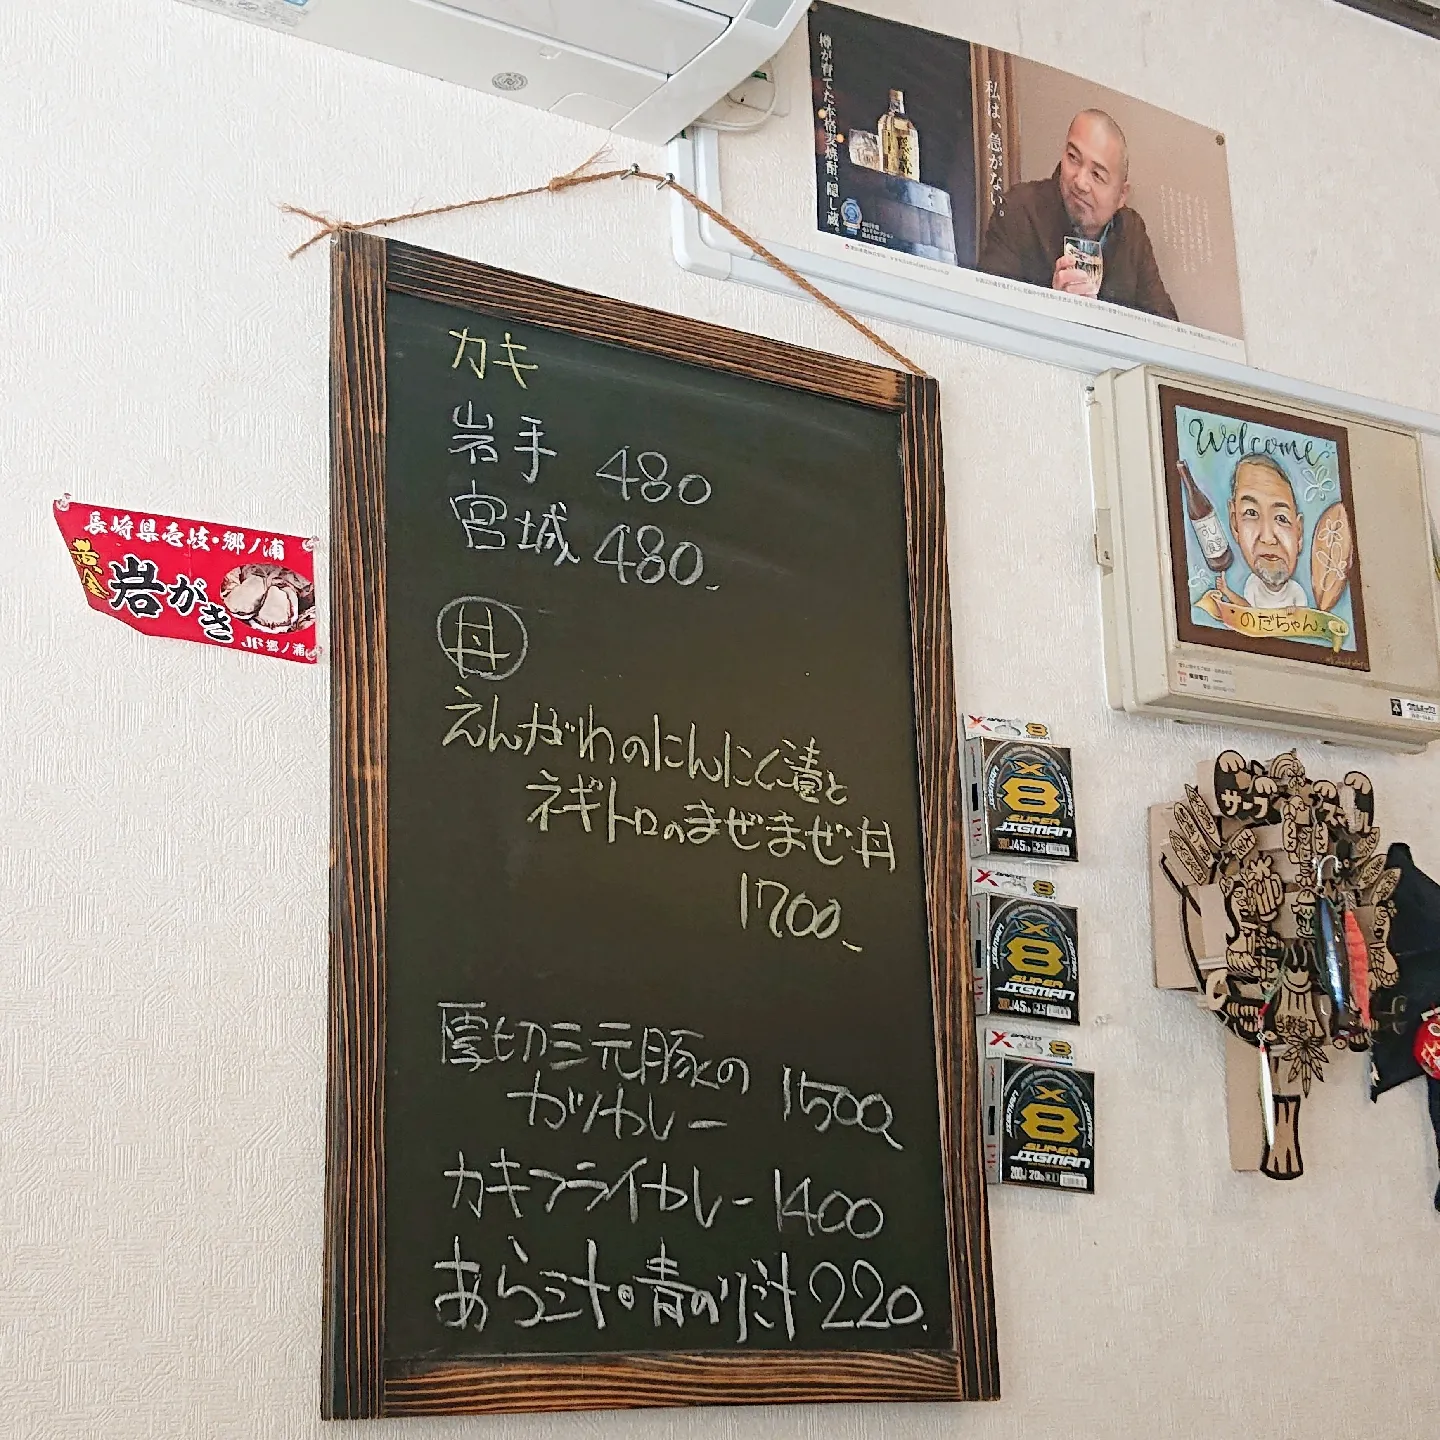 カキ
岩手 480
宮城 480.
丼
えんがわのにんにく漬と
ネギトロのまぜまぜ丼
1700.
厚切三元豚の
カツカレー 1500.
カキフライカレー 1400
あら汁・青のり汁 220.
長崎県壱岐・郷ノ浦
黄金
岩がき
郷ノ浦
樽が育てた本格麦焼酎、隠し蔵。
私は、急がない。
Welcome
のだちゃん
X8
SUPER
JIGMAN
X8
SUPER
JIGMAN
X8
SUPER
JIGMAN